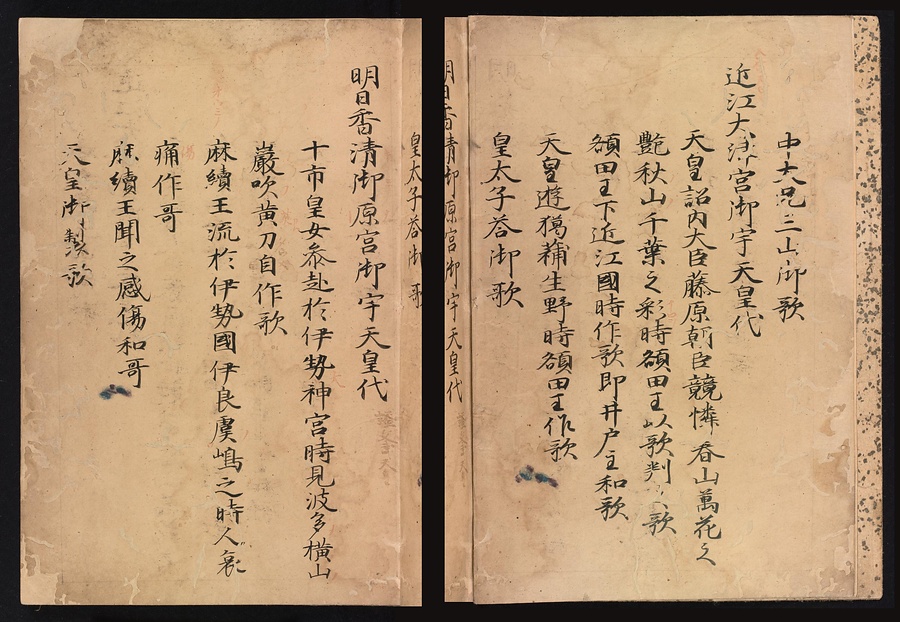 中大兄三山御歌
近江大津宮御宇天皇代
天皇詔内大臣藤原朝臣競憐春山萬花之
艶秋山千葉之彩時額田王以歌判之歌
額田王下近江國時作歌即井戸王和歌
天皇遊獦蒲生野時額田王作歌
皇太子荅御歌
明日香清御原宮御宇天皇代
皇太子荅御哥
明日香清御原宮御宇天皇代
十市皇女叅赴於伊勢神宮時見波多横山
巖吹黄刀自作歌
麻續王流於伊勢國伊良虞嶋之時人哀
痛作哥
麻續王聞之感傷和哥
天皇御製歌